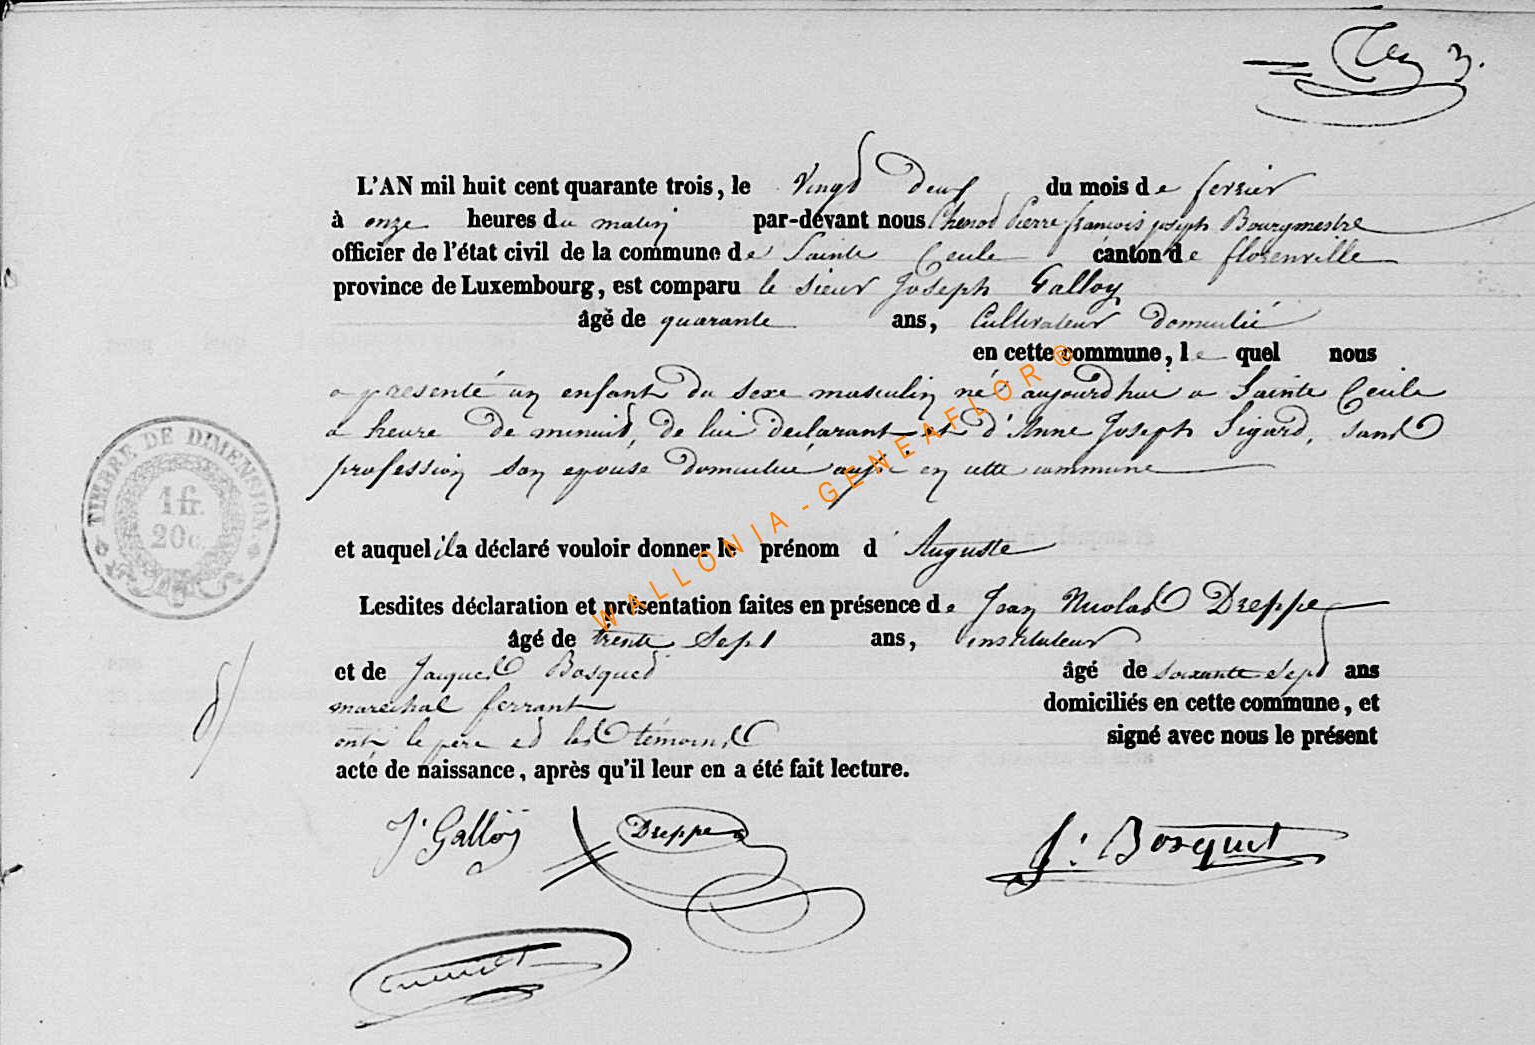 3.
L'AN mil huit cent quarante trois, le Vingt deux du mois de fevrier
à onze heures du matin par-devant nous Chenot Pierre françois joseph Bourgmestre
officier de l'état civil de la commune de Sainte Cecile canton de florenville
province de Luxembourg, est comparu le sieur Joseph Galloy
âgé de quarante ans, Cultivateur domicilié
en cette commune, le quel nous
a presenté un enfant du sexe masculin né aujourdhui a Sainte Cecile
a heure de minuit, de lui declarant et d'Anne Joseph Sigard, sans
profession son epouse domiciliée aussi en cette commune
et auquel il a déclaré vouloir donner le prénom d'Auguste
Lesdites déclaration et présentation faites en présence de Jean Nicolas Dreppe
âgé de trente sept ans, instituteur
et de Jacques Bosquet âgé de soixante sept ans
marechal ferrant domiciliés en cette commune, et
ont le pere et les témoins signé avec nous le présent
acte de naissance, après qu'il leur en a été fait lecture.
J. Galloy Dreppe J. Bosquet
TIMBRE DE DIMENSION
1 fr.
20 c.
WALLONIA - GENEAFLOR ®